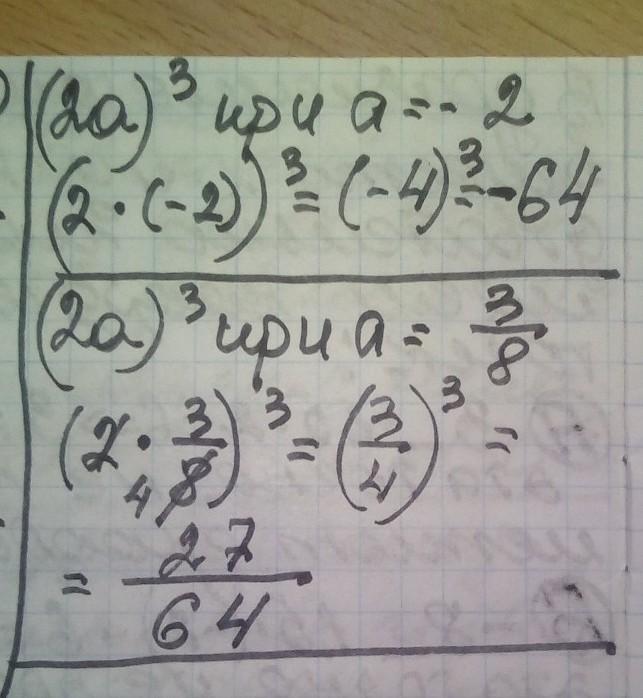 (2a)³ при a = - 2
(2 · (-2))³ = (-4)³ = -64
(2a)³ при a = 3/8
(2 · 3/8)³ = (3/4)³ =
4
= 27/64